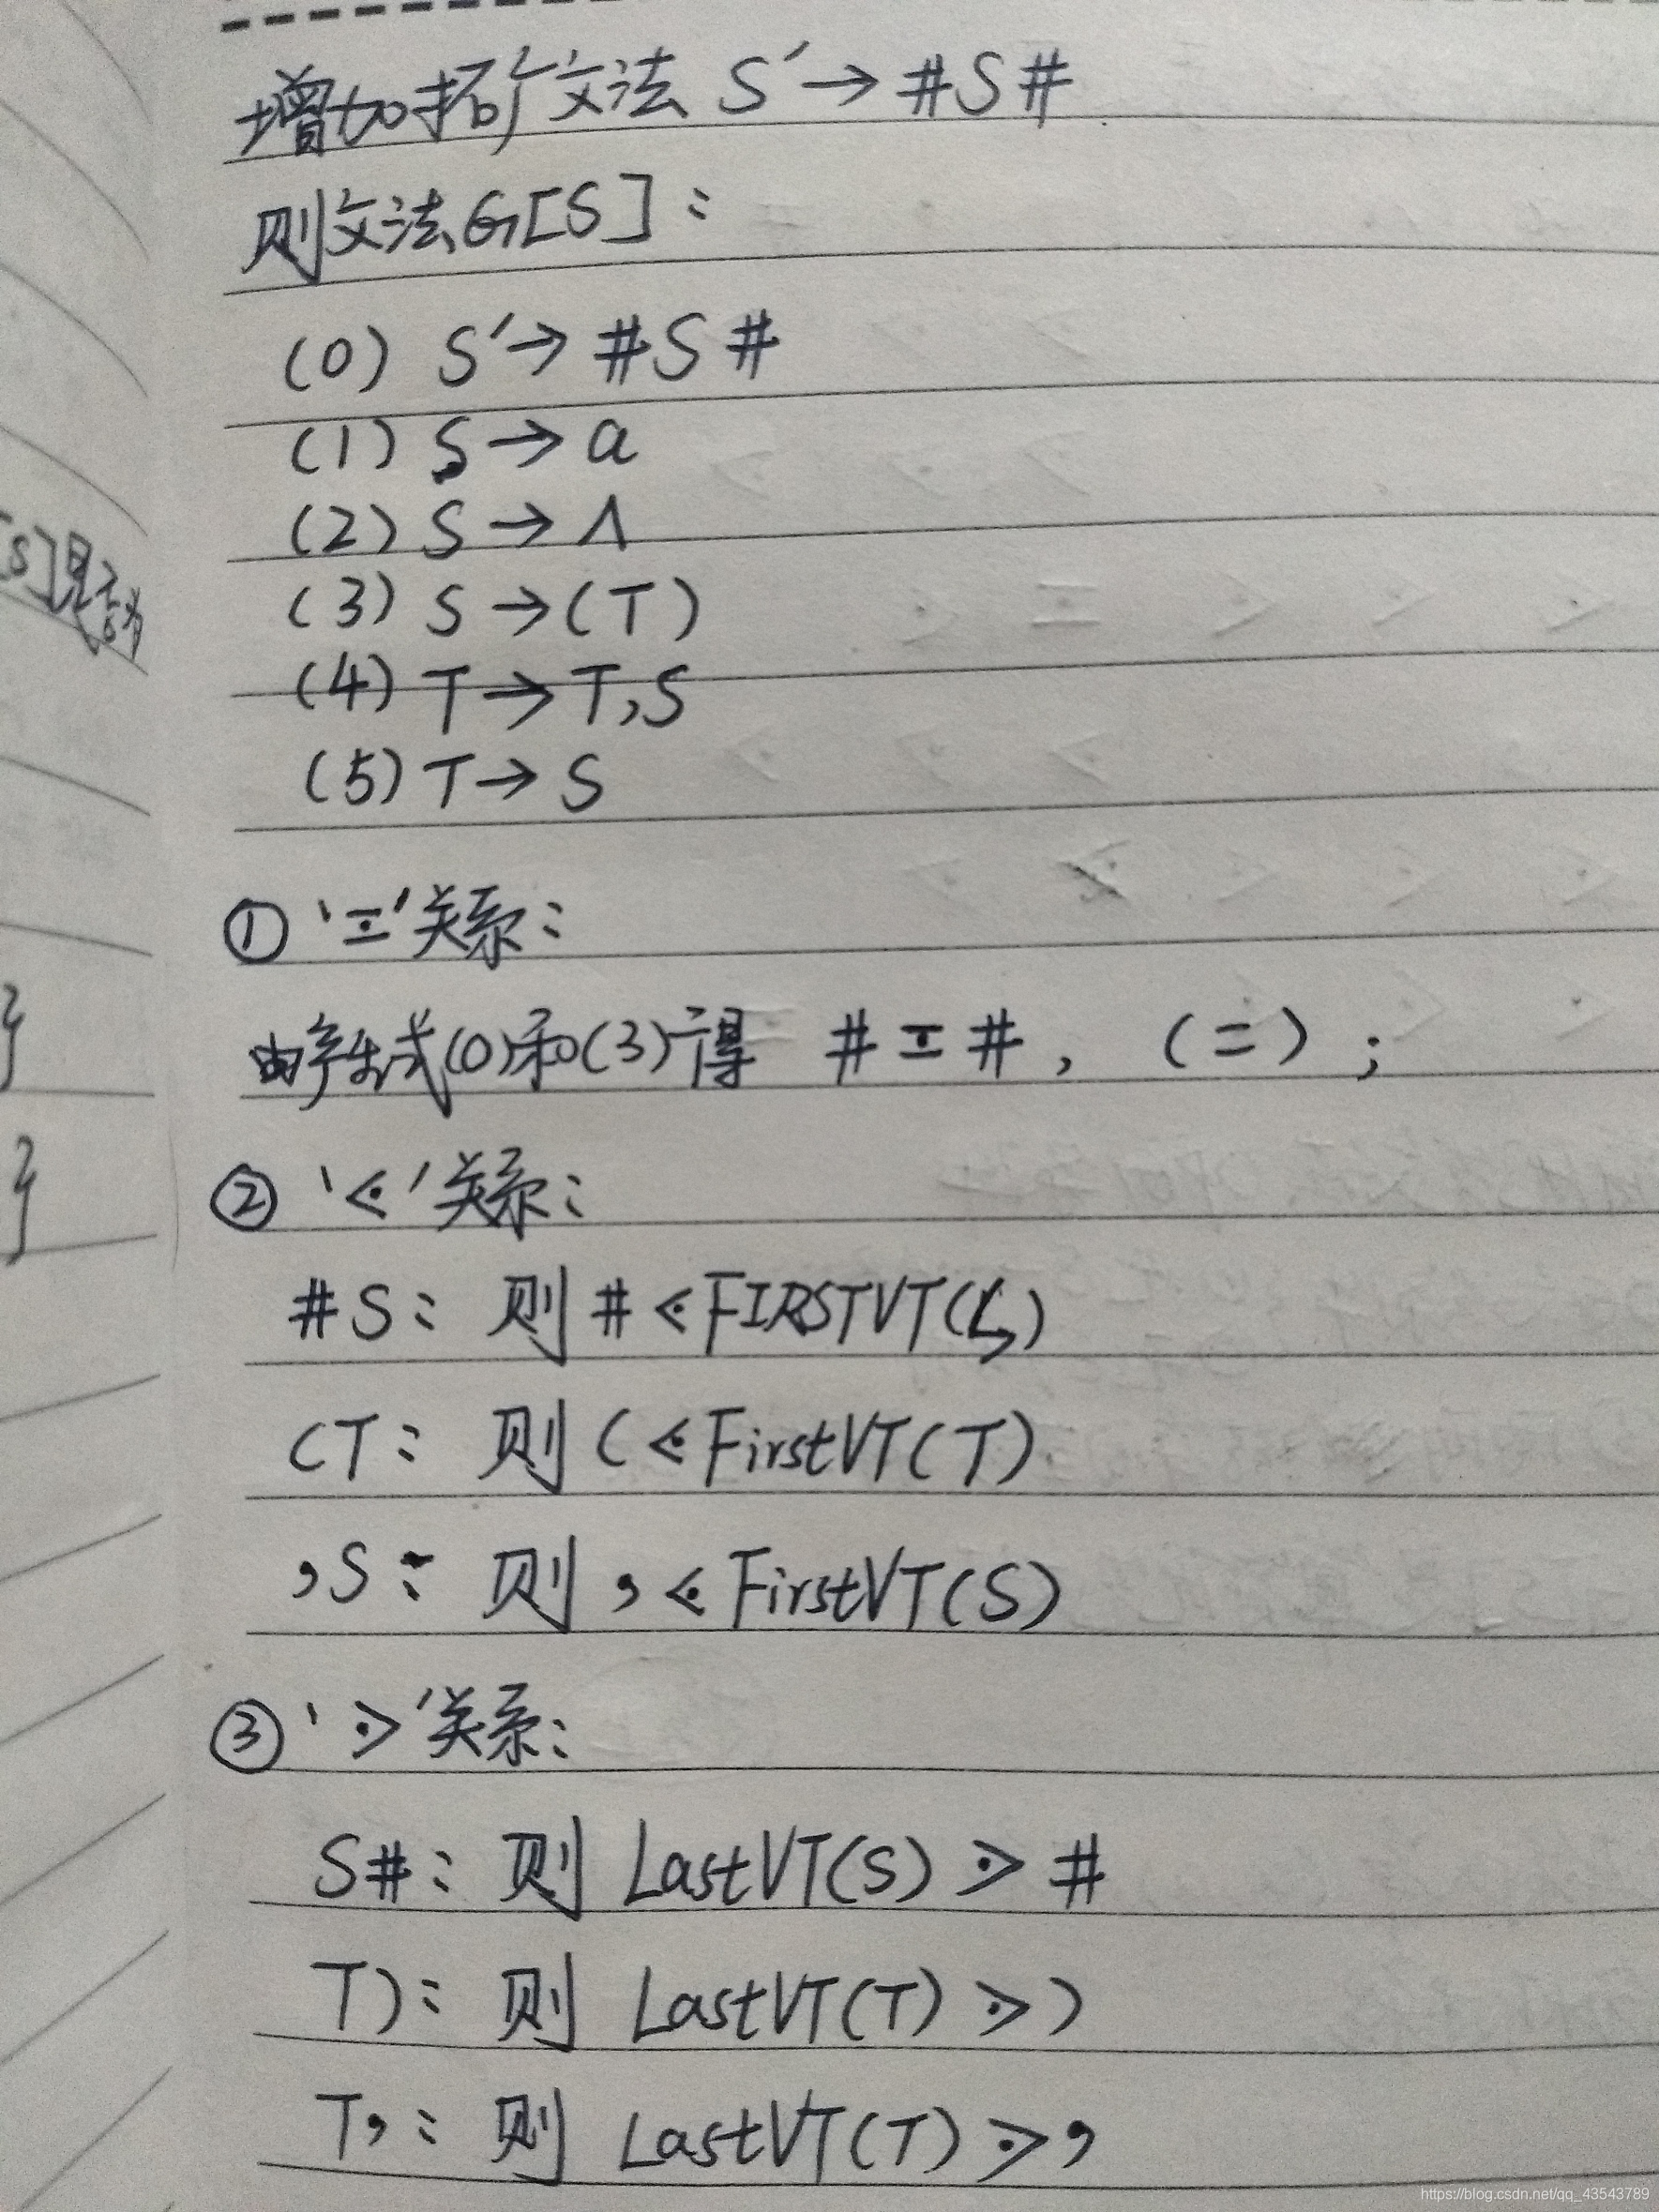 增加拓广文法 S'→#S#
则文法G[S]:
(0) S'→#S#
(1) S→a
(2) S→∧
(3) S→(T)
(4) T→T,S
(5) T→S
[S]是否为
① '≐'关系:
由产生式(0)和(3)得 #≐#, (≐);
② '⋖'关系:
#S: 则#⋖FIRSTVT(S)
(T: 则(⋖FirstVT(T)
,S: 则,⋖FirstVT(S)
③ '⋗'关系:
S#: 则 LastVT(S)⋗#
T): 则 LastVT(T)⋗)
T,: 则 LastVT(T)⋗,
https://blog.csdn.net/qq_43543789